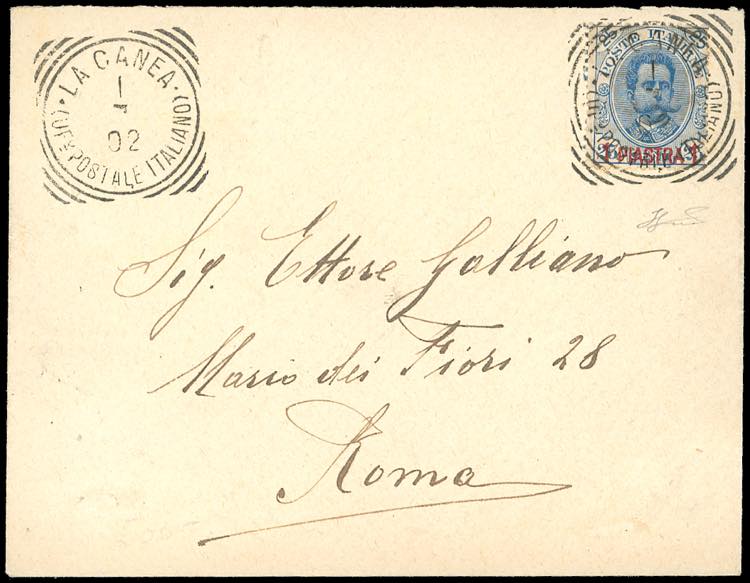 LA CANEA
(UFF. POSTALE ITALIANO)
1
4
02
25 POSTE ITALIANE 25
1 PIASTRA 1
Sig. Ettore Galliano
Mario dei Fiori 28
Roma